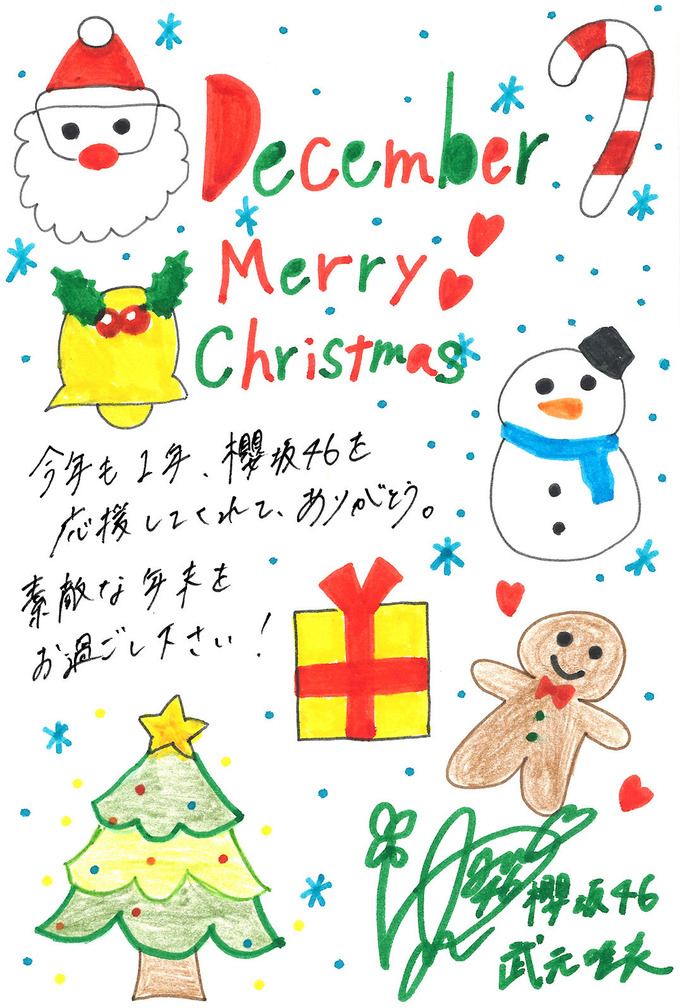 December
Merry
Christmas
今年も1年、櫻坂46を
応援してくれて、ありがとう。
素敵な年末を
お過ごし下さい!
46
櫻坂46
武元唯衣